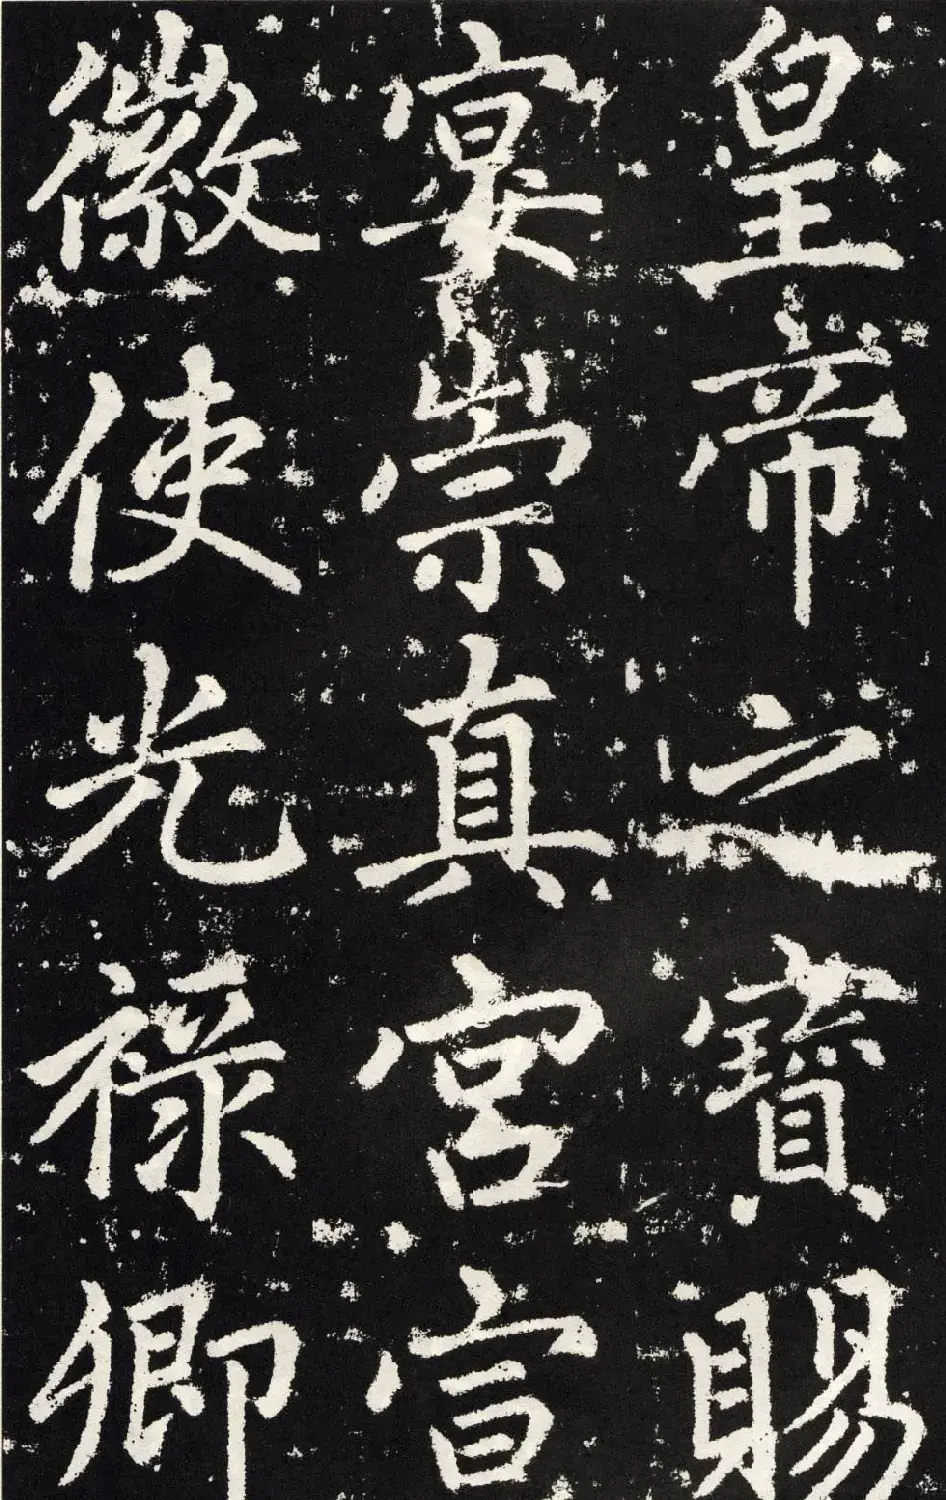 皇帝之寶賜
宸崇真宮宣
徽使光祿卿